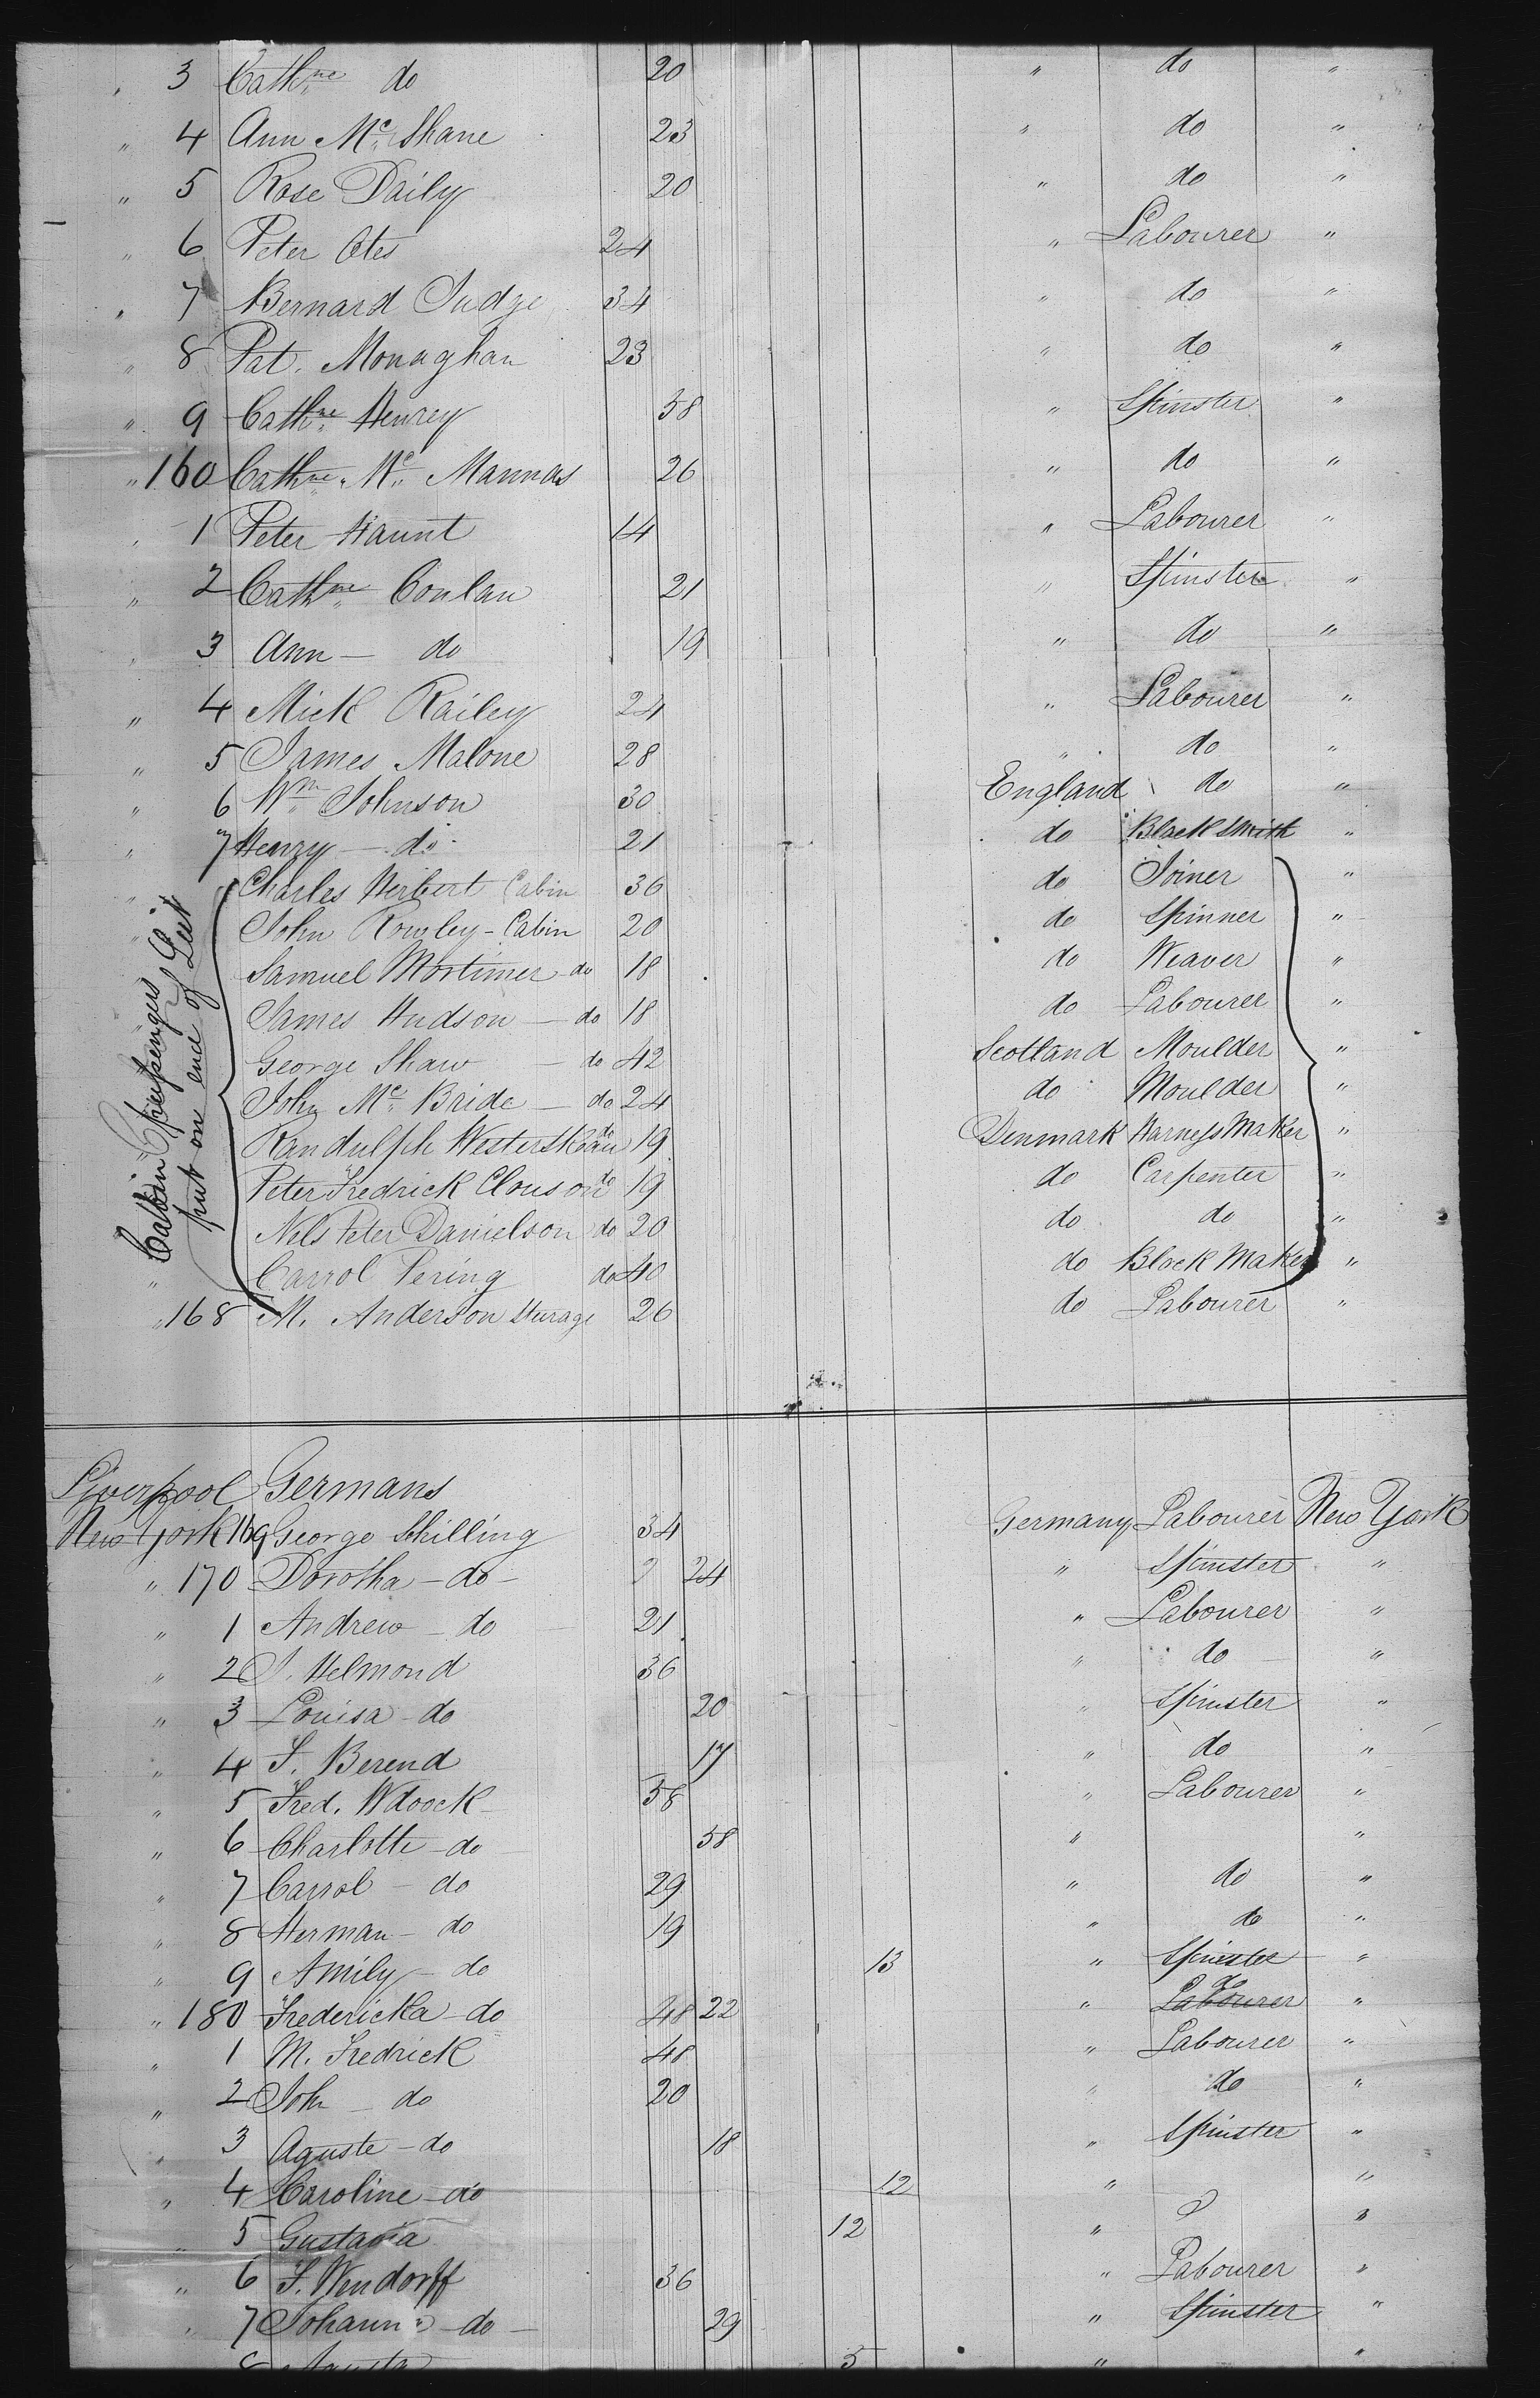 " 3 Cathne do 20 " do "
" 4 Ann Mc Shane 23 " do "
" 5 Rose Daily 20 " do "
" 6 Peter Otes 24 " Labourer "
" 7 Bernard Judge 34 " do "
" 8 Pat. Monaghan 23 " do "
" 9 Cathne Henrey 58 " Spinster "
" 160 Cathne Mc Mannas 26 " do "
" 1 Peter Haunt 14 " Labourer "
" 2 Cathne Conlan 21 " Spinster "
" 3 Ann - do 19 " do "
" 4 Mick Railey 24 " Labourer "
" 5 James Malone 28 " do "
" 6 Wm Johnson 30 England do "
" 7 Henry - do 21 do Black smith "
Cabbin put on end of List
" Charles Herbert Cabin 36 do Joiner "
" John Rowley - Cabin 20 do Spinner "
Samuel Mortimer do 18 do Weaver "
James Hudson - do 18 do Labourer "
George Shaw - do 42 Scotland Moulder "
John Mc Bride - do 24 do Moulder "
Randulph do 19 Denmark Harness Maker "
Peter Fredrick Clouson do 19 do Carpenter "
Nels Peter Danielson do 20 do do "
" Carrol Pering do 40 do Block Maker "
" 168 M. Anderson Sturage 26 do Labourer "
Liverpool Germans
New York 169 George Shilling 34 Germany Labourer New York
" 170 Dorotha - do - 24 " Spinster "
" 1 Andrew - do 21 " Labourer "
" 2 J. Helmond 36 " do "
" 3 Louisa - do 20 " Spinster "
" 4 S. Berend 17 " do "
" 5 Fred. Wdoock 58 " Labourer "
" 6 Charlotte - do 58 " "
" 7 Carrol - do 29 " do "
" 8 Herman - do 19 " do "
" 9 Amily - do 13 " Spinster "
do
" 180 Fredericka - do 48 22 " Labourer "
" 1 M. Fredrick 48 " Labourer "
" 2 Joh - do 20 " do "
" 3 Aguste - do 18 " Spinster "
" 4 Caroline - do 12 " "
" 5 Gustava 12 " "
" 6 F. Wendorff 36 " Labourer "
" 7 Johann - do - 29 " Spinster "
Agusta 5 " "